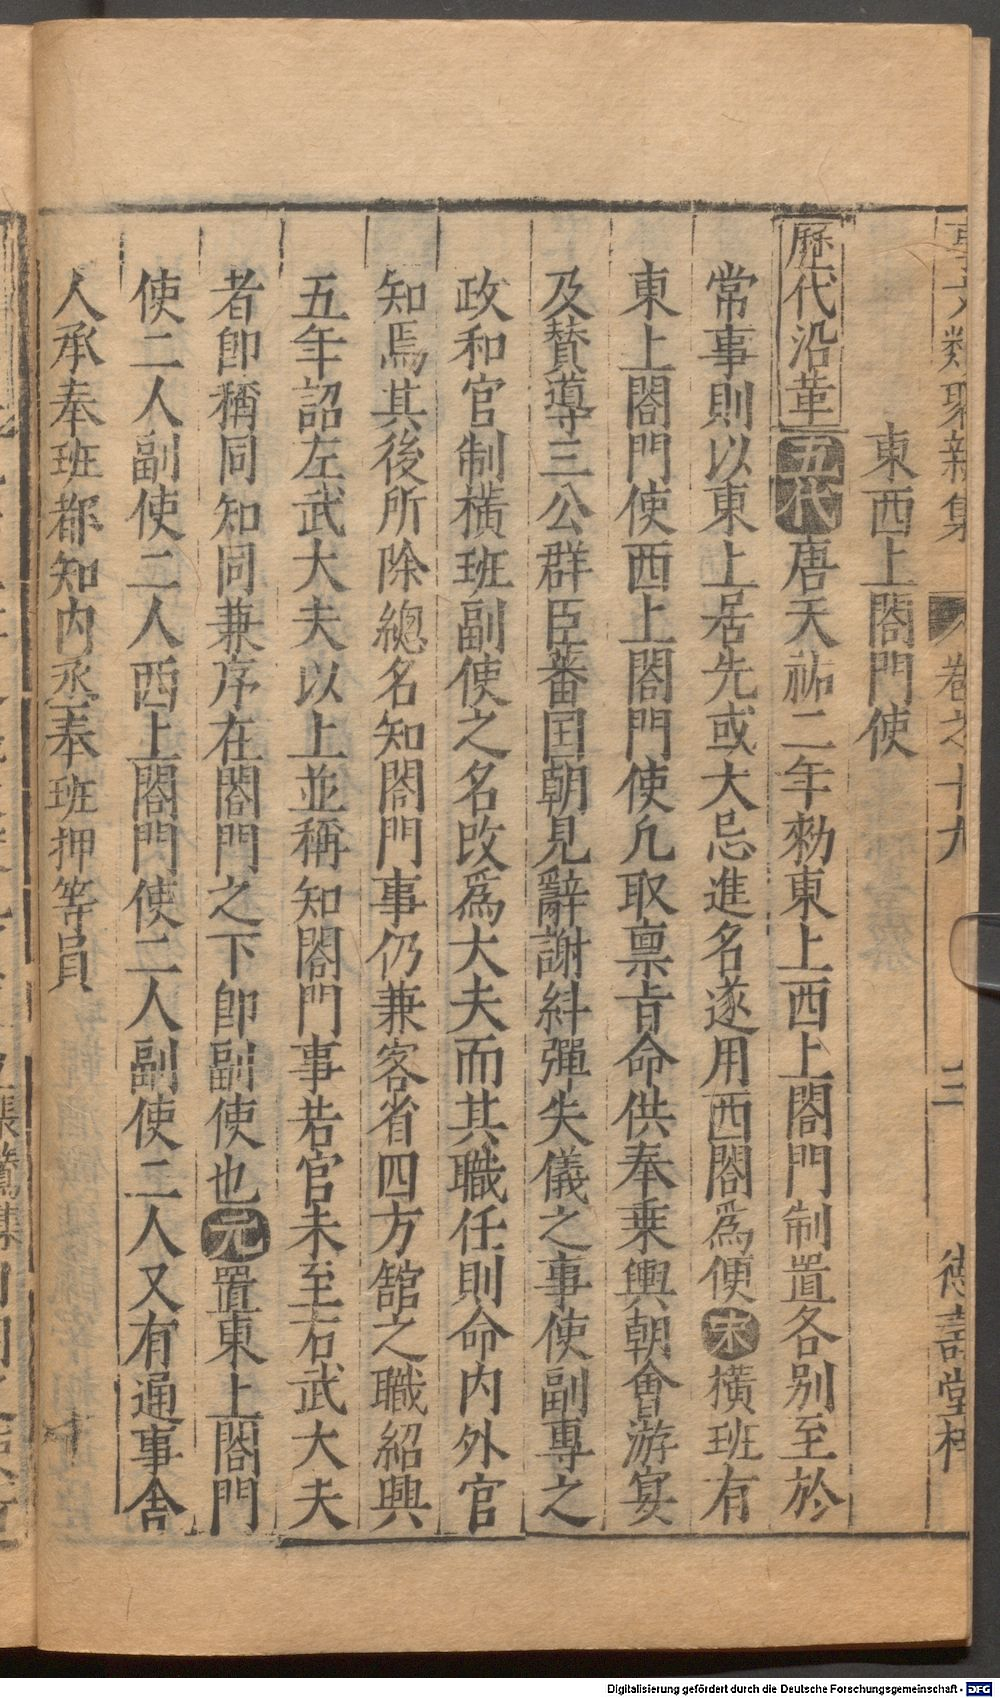 東西上閤門使
歷代沿革五代唐天祐二年勑東上西上閤門制置各別至於
常事則以東上居先或大忌進名遂用西閤爲便宋橫班有
東上閤門使西上閤門使凢取禀旨命供奉乗輿朝會游宴
及賛導三公群臣蕃国朝見辭謝糾彈失儀之事使副專之
政和官制橫班副使之名改爲大夫而其職任則命内外官
知焉其後所除緫名知閤門事仍兼客省四方舘之職紹興
五年詔左武大夫以上並稱知閤門事若官未至右武大夫
者即稱同知同兼序在閤門之下即副使也元置東上閤門
使二人副使二人西上閤門使二人副使二人又有通事舎
人承奉班都知内丞奉班押等員
類聚新集 卷之十九 二 德壽堂梓
Digitalisierung gefördert durch die Deutsche Forschungsgemeinschaft - DFG